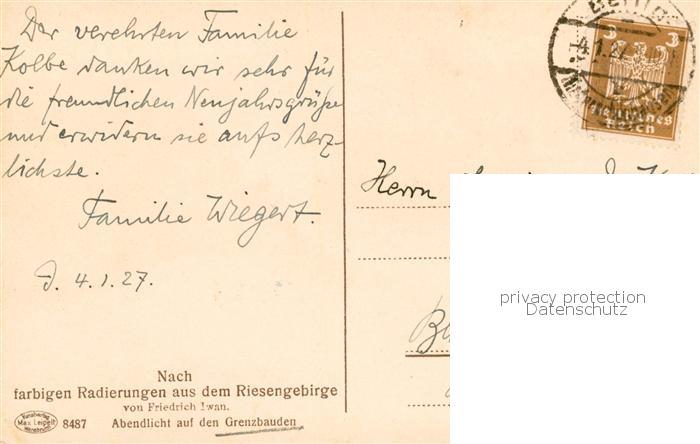 Der verehrten Familie
Kolbe danken wir sehr für
die freundlichen Neujahrsgrüße
und erwidern sie aufs herz-
lichste.
Familie Wiegert.
J. 4.1.27.
Nach
farbigen Radierungen aus dem Riesengebirge
von Friedrich Iwan.
Kunstverlag
Max Leipelt
Warmbrunn
8487 Abendlicht auf den Grenzbauden
Berlin
4.1.27
3 3
Deutsches
Reich
Herrn
privacy protection
Datenschutz